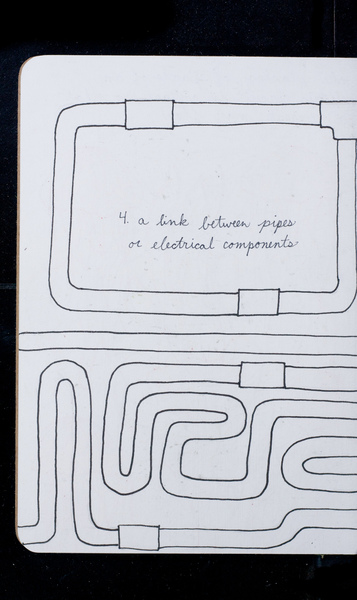 4. a link between pipes
or electrical components